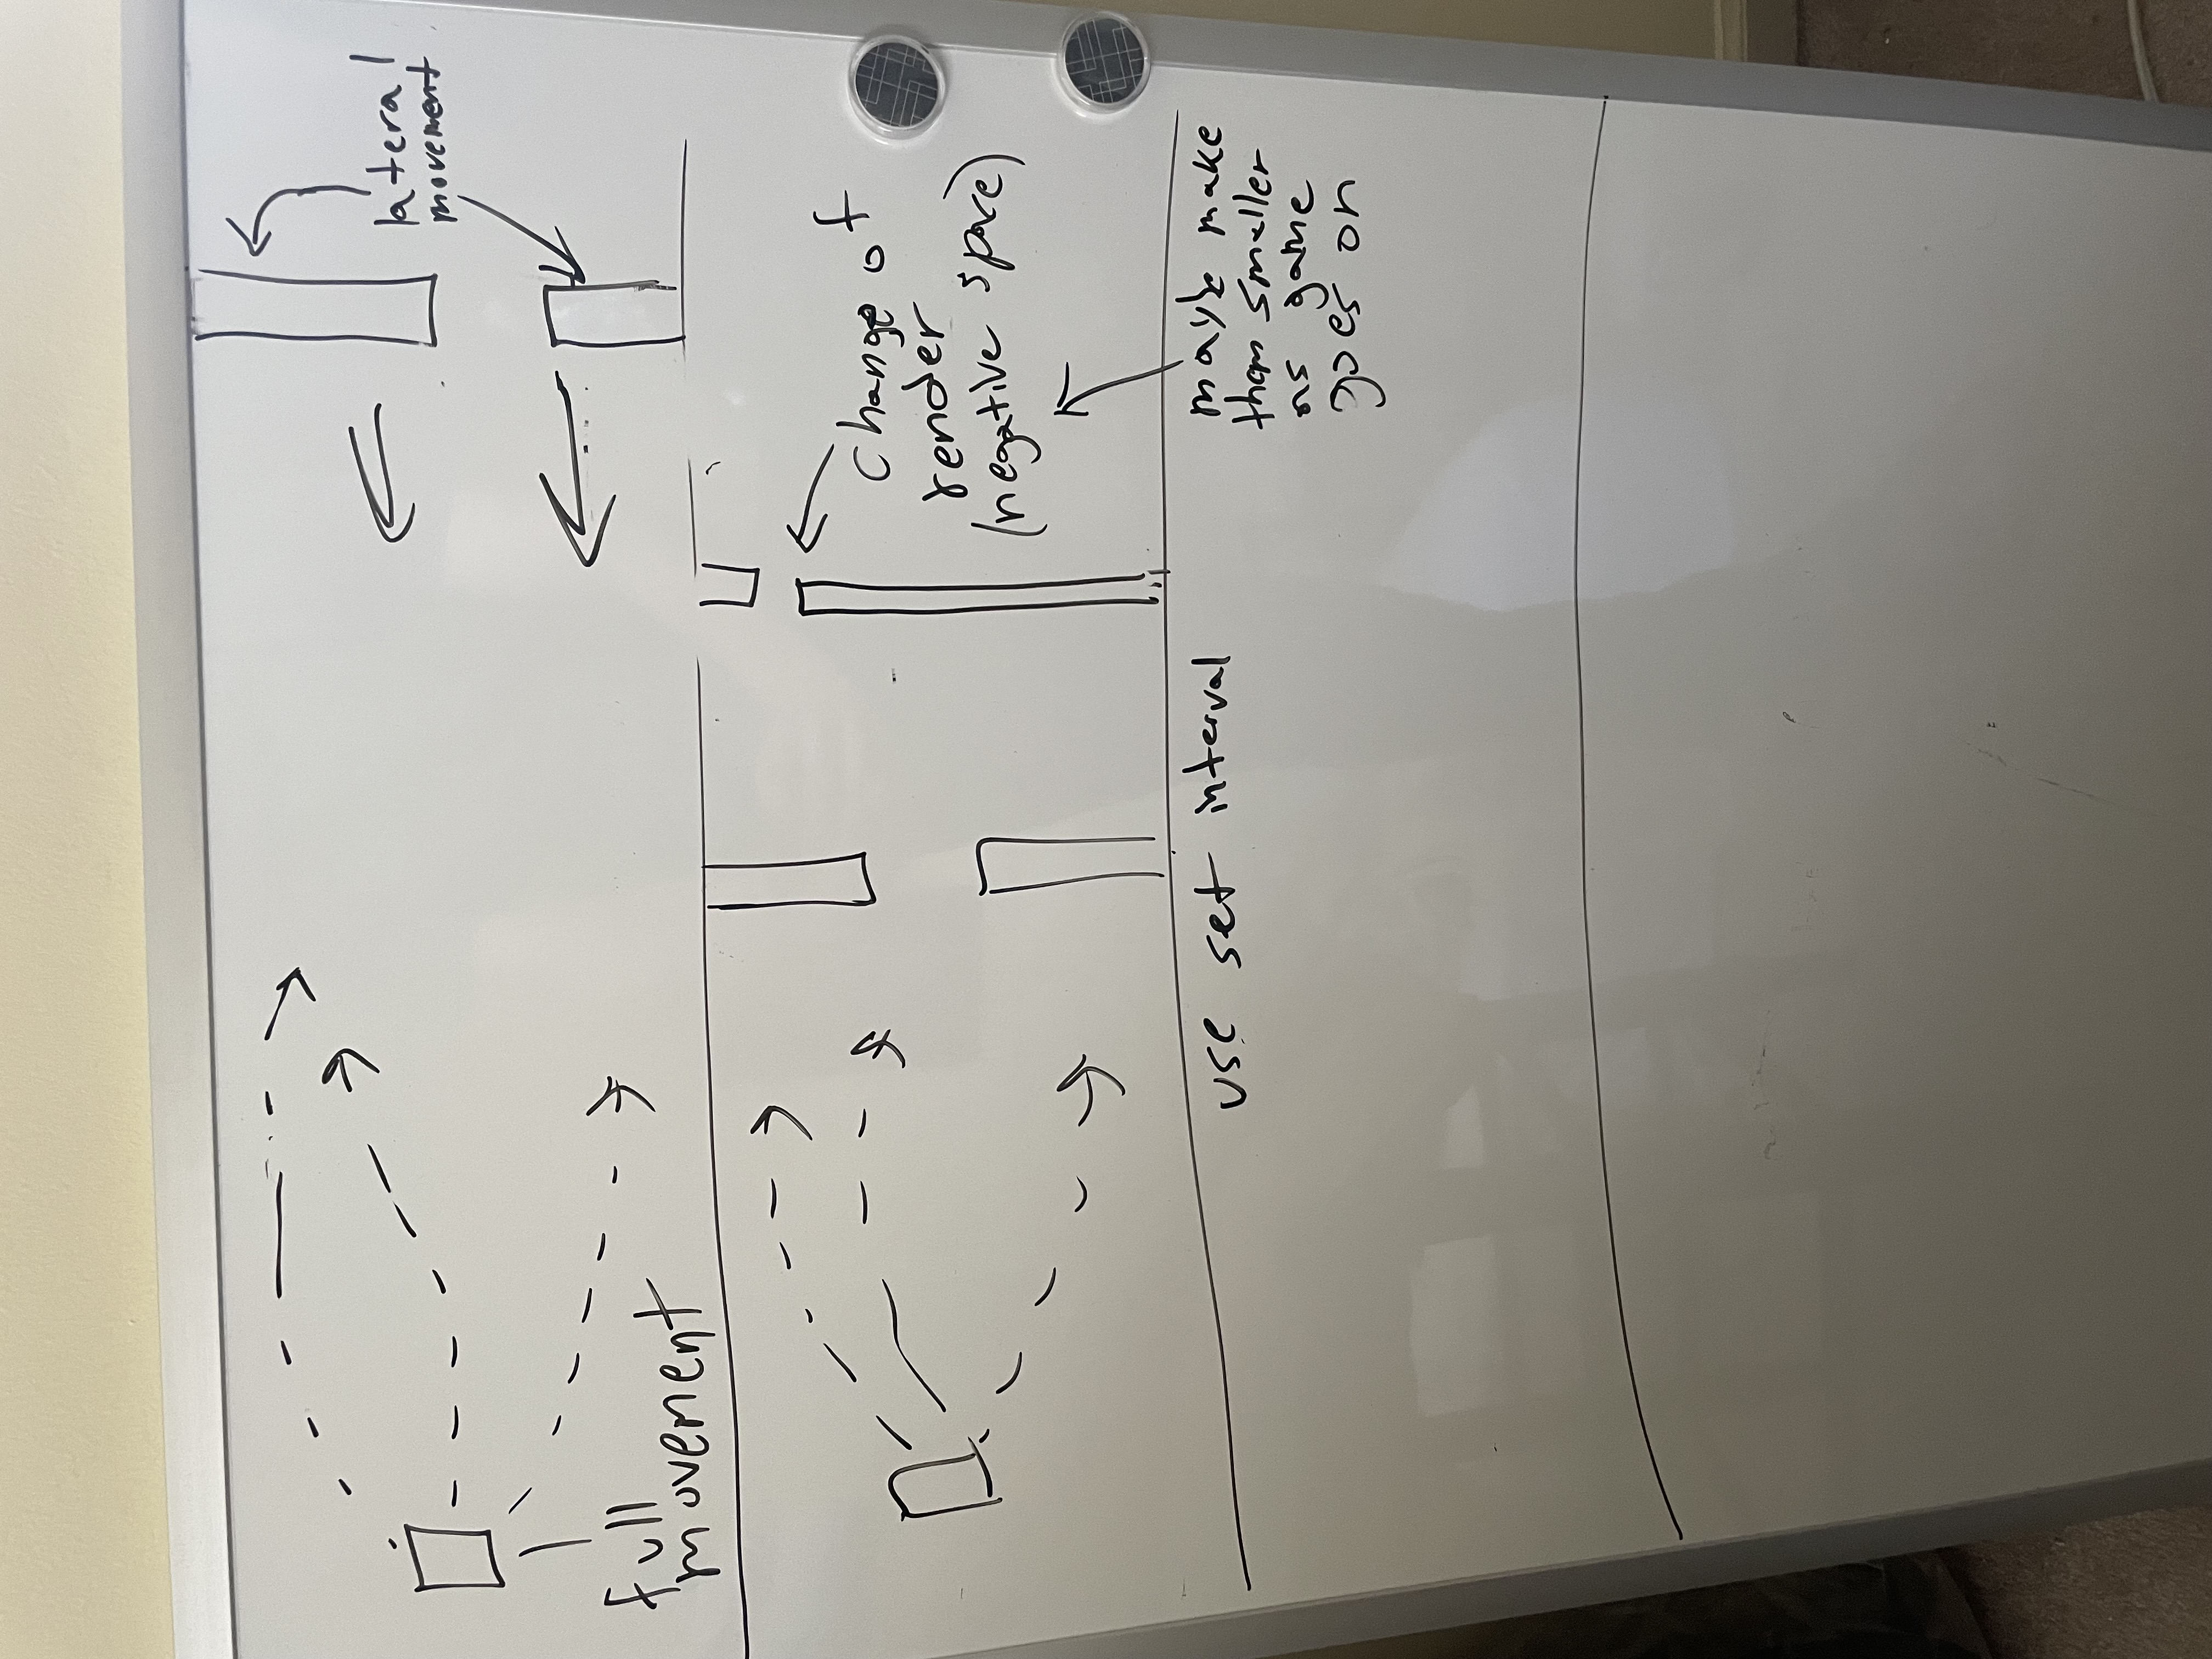 lateral
movement
full
movement
change of
render
(negative space)
use set interval
maybe make
them smaller
as game
goes on